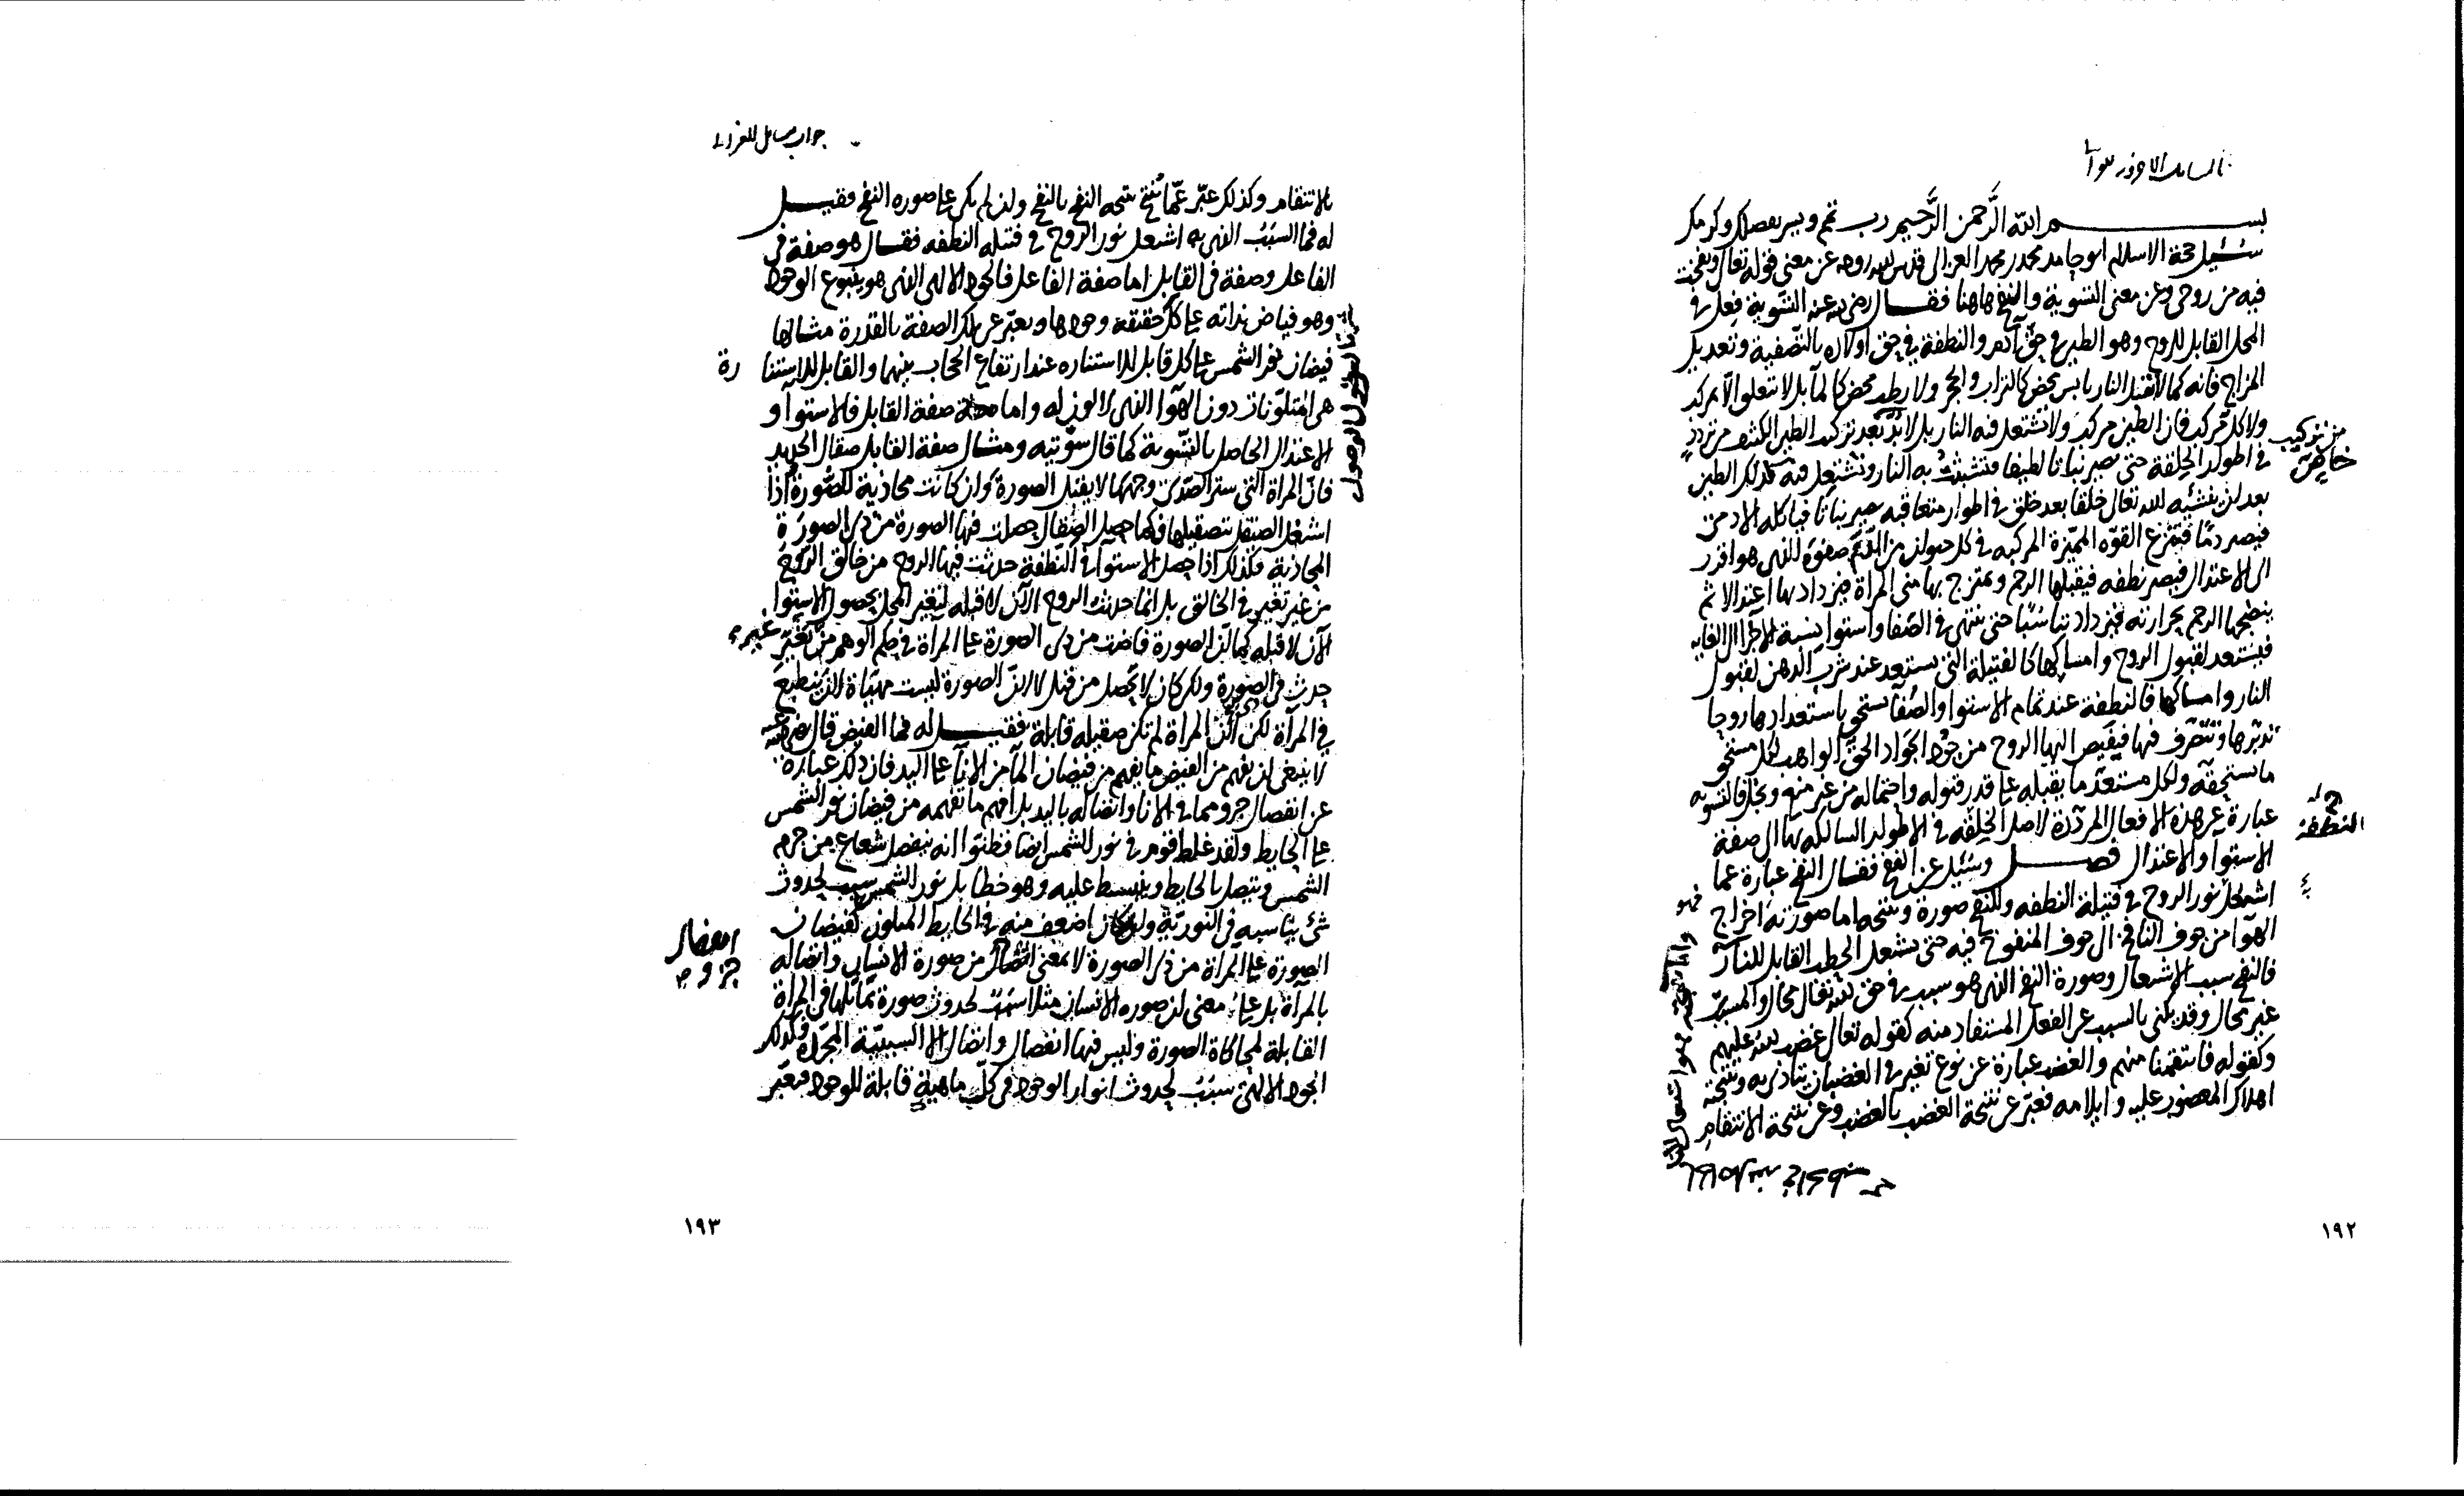 بســم الله الرحمن الرحيم رب تمم ويسر بفضلك وكرمك
سئل حجة الاسلام ابو حامد محمد بن محمد الغزالي قدس الله روحه عن معنى قوله تعالى ونفخت
فيه من روحي وعن معنى التسوية والنفخ هاهنا فقال رضي الله عنه التسوية فعل في
المحل القابل للروح وهو الطين في حق آدم والنطفة في حق اولاده بالتصفية وتعديل
المزاج فانه كما لا تقبل النار يابس محض كالتراب والحجر ولا رطب محض كالمآ بل لا تتعلق الا بمركب
ولا كل مركب فان الطين مركب ولا تشتعل فيه النار بل لا بد بعد تركيب الطين الكثيف من تردد
في اطوار الخلقة حتى يصير نباتا لطيفا فتتشبث به النار وتشتعل فيه فكذلك الطين
بعد ان ينشئه الله تعالى خلقا بعد خلق في اطوار متعاقبة يصير نباتا فياكله الادمي
فيصير دما فتنتزع القوة المميزة المركبة في كل حيوان من الدم صفوه الذي هو اقرب
الى الاعتدال فيصير نطفة فيقبلها الرحم ويمتزج بها مني المراة فيزداد بها اعتدالا ثم
ينضجها الرحم بحرارته فيزداد تناسبا حتى ينتهي في الصفا واستوا نسبة الاجزا الى الغاية
فيستعد لقبول الروح وامساكها كالفتيلة التي تستعد عند شرب الدهن لقبول
النار وامساكها فالنطفة عند تمام الاستوا والصفا تستحق باستعدادها روحا
تدبرها وتتصرف فيها فيفيض اليها الروح من جود الجواد الحق الواهب لكل مستحق
ما يستحقه ولكل مستعد ما يقبله على قدر قبوله واحتماله من غير منع وبخل فالتسوية
عبارة عن هذه الافعال المرددة لاصل الخلقة في الاطوار السالكة بها الى صفة
الاستوآ والاعتدال فصــل وسئل عن النفخ فقال النفخ عبارة عما
اشتعل نور الروح في فتيلة النطفة وللنفخ صورة ونتيجة اما صورته اخراج
الهوآ من جوف النافخ الى جوف المنفوخ فيه حتى يشتعل الحطب القابل للنار
فالنفخ سبب الاشتعال وصورة النفخ الذي هو سبب في حق الله تعالى محال والمسبب
غير محال وقد يكنى بالسبب عن الفعل المستفاد منه كقوله تعالى غضب الله عليهم
وكقوله فانتقمنا منهم والغضب عبارة عن نوع تغير في الغضبان يتاذى به ونتيجته
اهلاك المغضوب عليه وايلامه فعبر عن نتيجة الغضب بالغضب وعن نتيجة الانتقام
من تركيب
النطفة
فهو
١٩٢
جواب مسايل للغزالي
بالانتقام وكذلك عبر عما ينتج نتيجة النفخ بالنفخ وان لم يكن على صورة النفخ فقيــل
له فما السبب الذي به اشتعل نور الروح في فتيلة النطفة فقــال هو صفة في
الفاعل وصفة في القابل اما صفة الفاعل فالجود الالهي الذي هو ينبوع الوجود
وهو فياض بذاته على كل حقيقة وجودها ويعبر عن تلك الصفة بالقدرة مثالها
فيضان نور الشمس على كل قابل للاستنارة عند ارتفاع الحجاب بينهما والقابل للاستنا رة
هي المتلونات دون الهوآ الذي لا لون له واما صفة القابل فالاستوآ و
الاعتدال الحاصل بالتسوية كما قال سويته ومثــال صفة القابل صقال الحديد
فان المرآة التي ستر الصدئ وجهها لا يقبل الصورة وان كانت محاذية للصورة اذا
اشتغل الصيقل بتصقيلها فكما حصل الصقال حصلت فيها الصورة من ذي الصورة
المحاذية فكذلك اذا حصل الاستوآ في النطفة حدثت فيها الروح من خالق الروح
من غير تغير في الخالق بل انما حدثت الروح الآن لا قبله لتغير المحل بحصول الاستوا
الآن لا قبله كما ان الصورة فاضت من ذي الصورة على المرآة في حكم الوهم من غير تغير
حدث في الصورة ولكن كان لا تحصل من قبل لا لان الصورة ليست مهياة لان ينطبع
في المرآة لكن لان المرآة لم تكن صقيلة قابلة فقيــل له فما الفيض قال رضي الله عنه
لا ينبغي ان يفهم من الفيض ما يفهم من فيضان المآ من الانآ على اليد فان ذلك عبارة
عن انفصال جزو مما في الانا واتصاله باليد بل افهم ما تفهمه من فيضان نور الشمس
على الحايط ولقد غلط قوم في نور الشمس ايضا فظنوا انه ينفصل شعاع من جرم
الشمس ويتصل بالحايط وينبسط عليه وهو خطا بل نور الشمس سبب لحدوث
شئ يناسبه في النورية وان كان اضعف منه في الحايط الملون كفيضان
الصورة على المرآة من ذي الصورة لا بمعنى انفصال من صورة الانسان واتصاله
بالمرآة بل على معنى ان صورة الانسان مثلا سبب لحدوث صورة تماثلها في المرآة
القابلة لمحاكاة الصورة وليس فيها انفصال واتصال الا السببية المجردة فكذلك
الجود الالهي سبب لحدوث انوار الوجود في كل ماهية قابلة للوجود فيعبر
انفصال
جزو
١٩٣